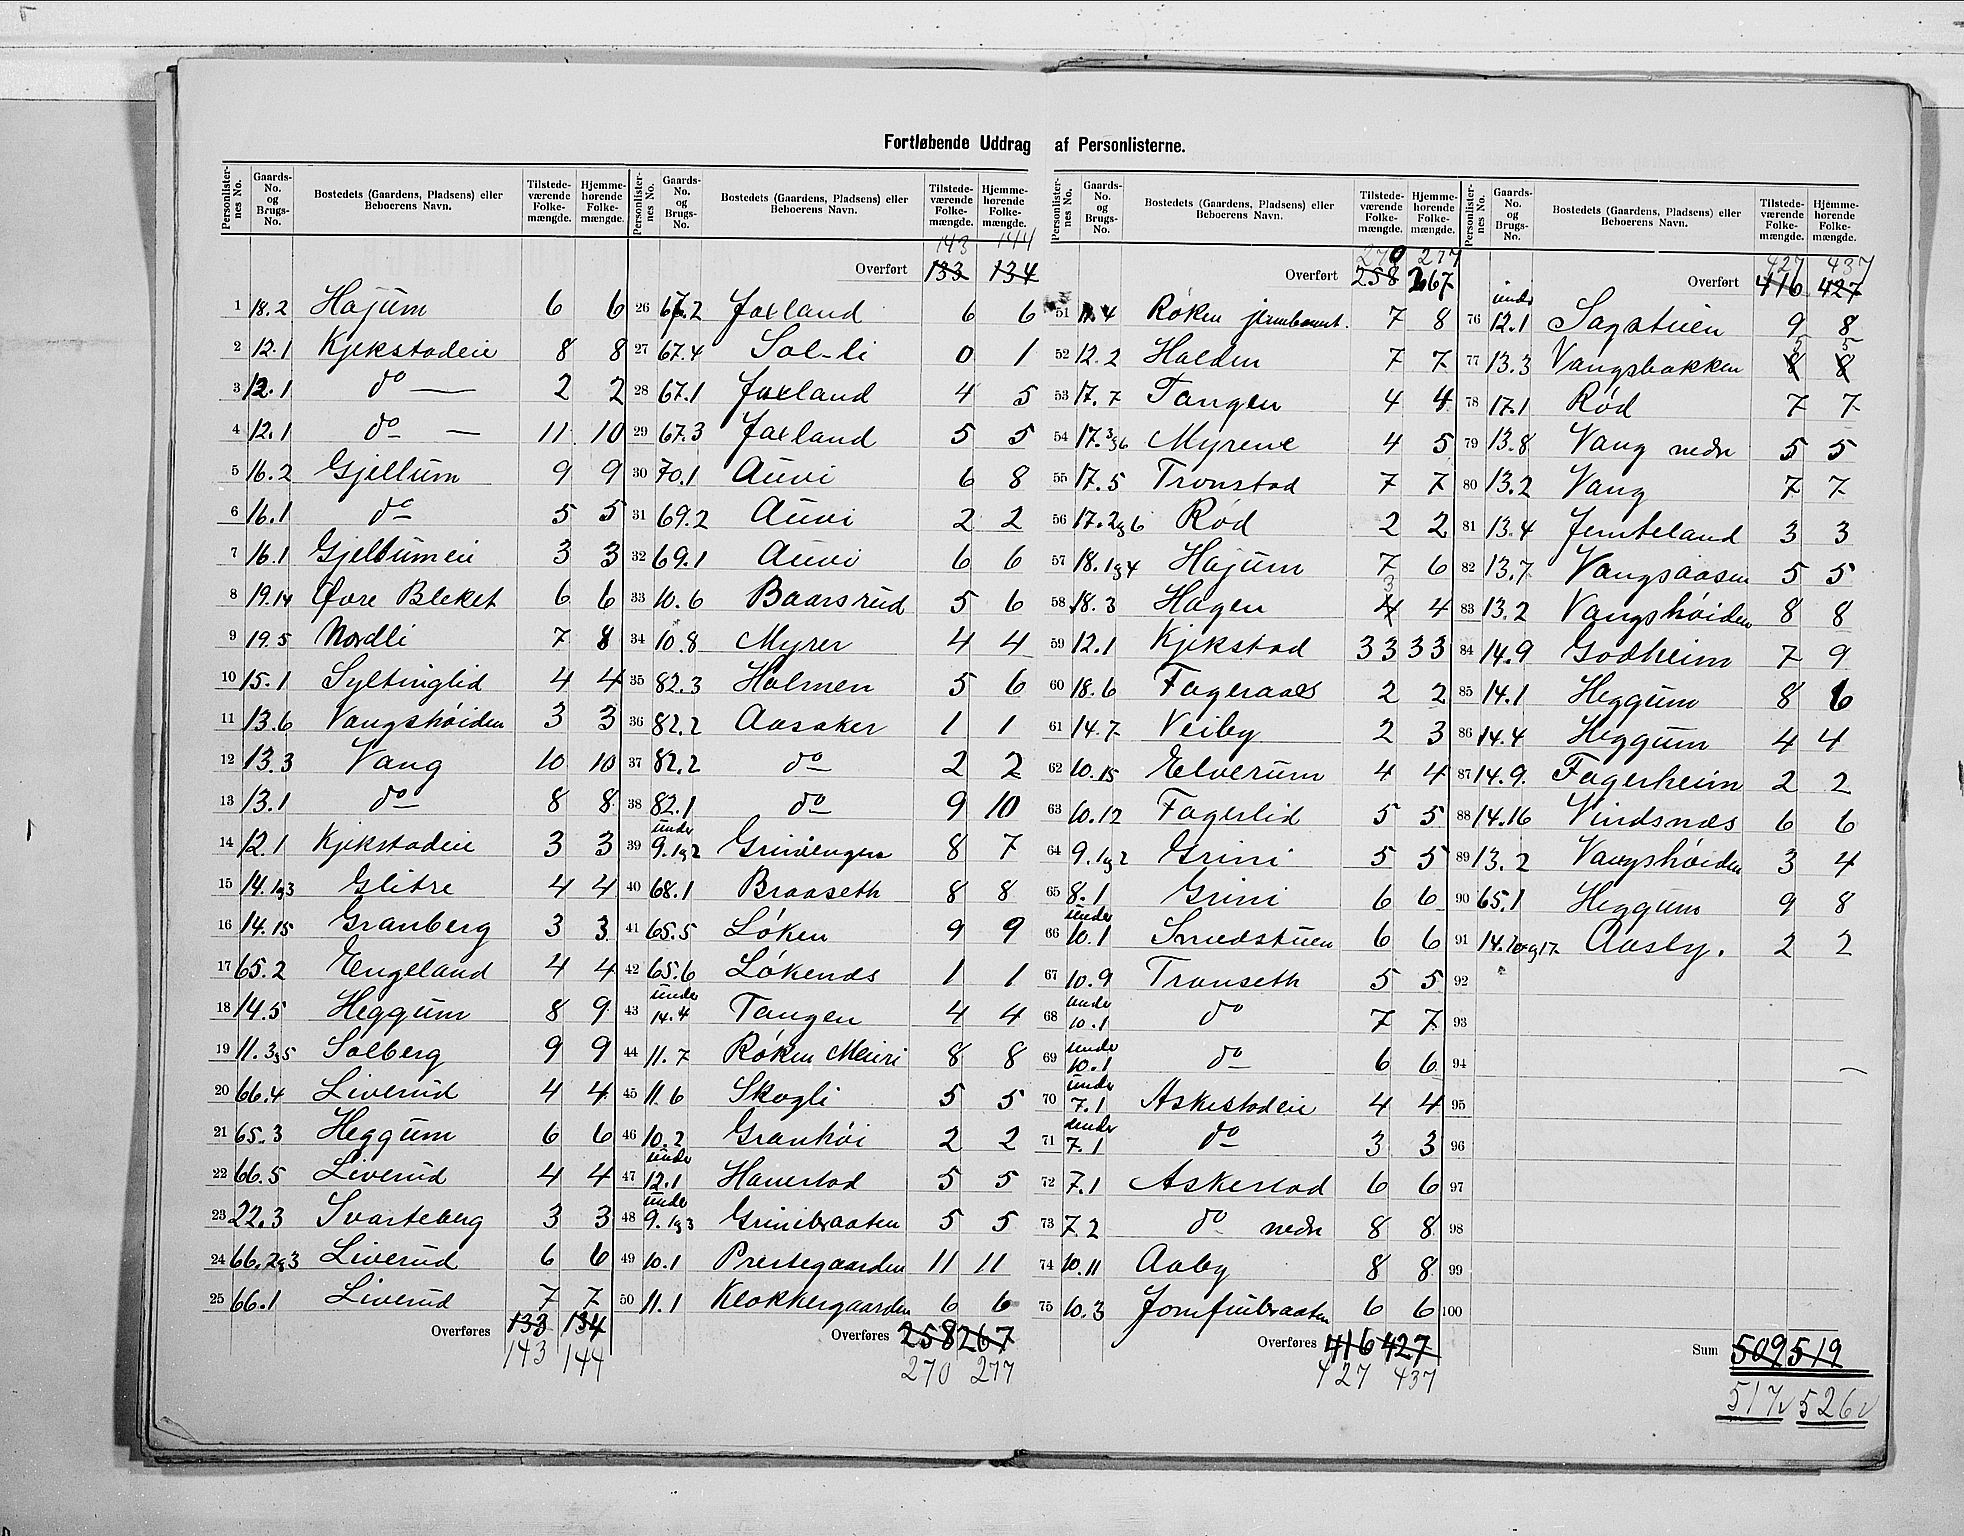 Fortløbende Uddrag af Personlisternes.
Personlister-nes No. | Gaards-No. og Brugs-No. | Bostedets (Gaardens, Pladsens) eller Beboerens Navn. | Tilstedeværende Folkemængde. | Hjemmehørende Folkemængde.
1 18.2 Højum 6 6
2 12.1 Kjekstadeie 8 8
3 12.1 do — 2 2
4 12.1 do — 11 10
5 16.2 Gjellum 9 9
6 16.1 do 5 5
7 16.1 Gjellumeie 3 3
8 19.14 Øvre Bleket 6 6
9 19.5 Nordli 7 8
10 15.1 Syltinglid 4 4
11 13.6 Vangshøiden 3 3
12 13.3 Vang 10 10
13 13.1 do 8 8
14 12.1 Kjekstadeie 3 3
15 14.1 og 3 Glitre 4 4
16 14.15 Granberg 3 3
17 65.2 Engeland 4 4
18 14.5 Heggum 8 9
19 11.3 og 5 Solberg 9 9
20 66.4 Liverud 4 4
21 65.3 Heggum 6 6
22 66.5 Liverud 4 4
23 22.3 Svarteberg 3 3
24 66.2 og 3 Liverud 6 6
25 66.1 Liverud 7 7
Overføres 133 134
143 144
143 144
Overført 133 134
26 67.2 Foxland 6 6
27 67.4 Sol-li 0 1
28 67.1 Foxland 4 5
29 67.3 Foxland 5 5
30 70.1 Auvi 6 8
31 69.2 Auvi 2 2
32 69.1 Auvi 6 6
33 10.6 Baarsrud 5 6
34 10.8 Myrer 4 4
35 82.3 Holmen 5 6
36 82.2 Aasaker 1 1
37 82.2 do 2 2
38 82.1 do 9 10
39 under 9.1 og 2 Griniengen 8 7
40 68.1 Braaseth 8 8
41 65.5 Løken 9 9
42 65.6 Løkenes 1 1
43 under 14.4 Tangen 4 4
44 11.7 Røken Meieri 8 8
45 11.6 Skogli 5 5
46 10.2 Granhøi 2 2
47 under 12.1 Hanestad 5 5
48 under 9.1 og 3 Grinibraaten 5 5
49 10.1 Prestegaarden 11 11
50 11.1 Klokkergaarden 6 6
Overføres 258 267
270 277
270 277
Overført 258 267
51 11.4 Røken jernbanest. 7 8
52 12.2 Halden 7 7
53 17.7 Tangen 4 4
54 17.3 og 6 Myrene 4 5
55 17.5 Tronstad 7 7
56 17.2 og 6 Rød 2 2
57 18.1 og 4 Højum 7 6
58 18.3 Hagen 4 3 4
59 12.1 Kjekstad 33 33
60 18.6 Fageraas 2 2
61 14.7 Veiby 2 3
62 10.15 Elverum 4 4
63 10.12 Fagerlid 5 5
64 9.1 og 2 Grini 5 5
65 8.1 Grini 6 6
66 under 10.1 Smedstuen 6 6
67 10.9 Transeth 5 5
68 under 10.1 do 7 7
69 under 10.1 do 6 6
70 under 7.1 Askestadeie 4 4
71 under 7.1 do 3 3
72 7.1 Askestad 6 6
73 7.2 do nedr 8 8
74 10.11 Aaby 8 8
75 10.3 Jomfrubraaten 6 6
Overføres 416 427
427 437
427 437
Overført 416 427
76 under 12.1 Sagstuen 9 8
77 13.3 Vangsbakken 8 5 8 5
78 17.1 Rød 7 7
79 13.8 Vang nedr 5 5
80 13.2 Vang 7 7
81 13.4 Jemteland 3 3
82 13.7 Vangsaasen 5 5
83 13.2 Vangshøiden 8 8
84 14.9 Godheim 7 9
85 14.1 Heggum 8 6
86 14.4 Heggum 4 4
87 14.9. Fagerheim 2 2
88 14.16 Vindsnæs 6 6
89 13.2 Vangshøiden 3 4
90 65.1 Heggum 9 8
91 14.10 og 17 Aasby. 2 2
92
93
94
95
96
97
98
99
100
Sum 509 519
517 526